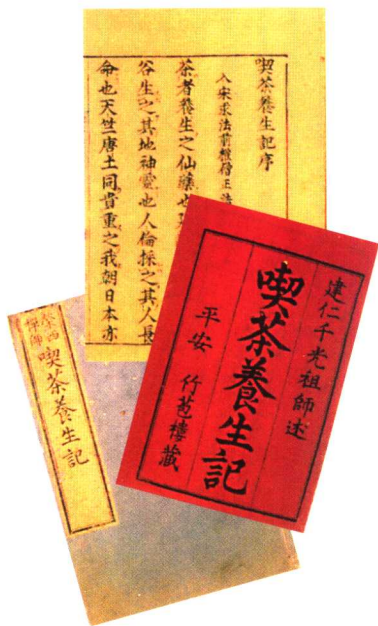 喫茶養生記序
入宋求法前權僧正法
茶者養生之仙藥也
谷生之其地神靈也人倫採之其人長
命也天竺唐土同貴重之我朝日本亦
建仁千光祖師述
喫茶養生記
平安 竹苞樓藏
榮西
喫茶養生記